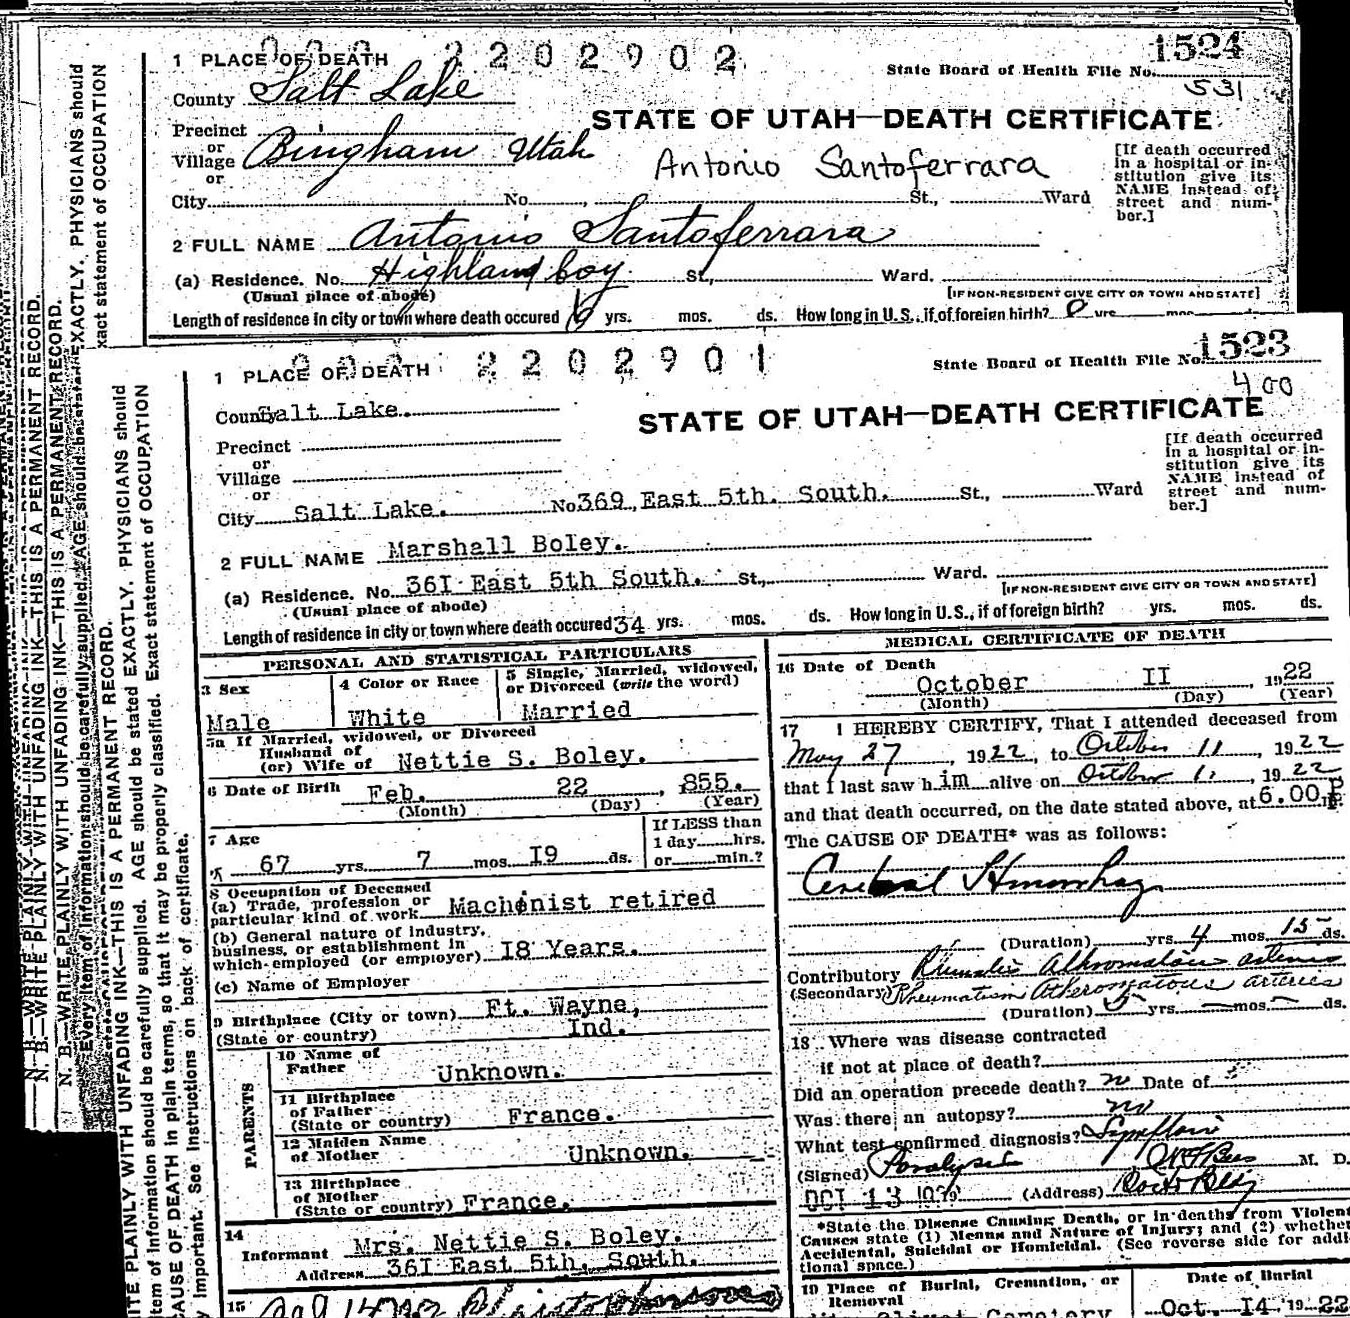 1 PLACE OF DEATH 2202902
State Board of Health File No. 1524
531
County Salt Lake
STATE OF UTAH—DEATH CERTIFICATE
Precinct
or
Village Bingham Utah
or
Antonio Santoferrara
[If death occurred
in a hospital or in-
stitution give its
NAME instead of
street and num-
ber.]
City No. St., Ward
2 FULL NAME Antonio Santoferrara
(a) Residence. No. Highland boy St., Ward.
(Usual place of abode)
[IF NON-RESIDENT GIVE CITY OR TOWN AND STATE]
Length of residence in city or town where death occured yrs. mos. ds. How long in U.S., if of foreign birth? yrs. mos. ds.
1 PLACE OF DEATH 2202901
State Board of Health File No. 1523
400
County Salt Lake.
STATE OF UTAH—DEATH CERTIFICATE
Precinct
or
Village
or
[If death occurred
in a hospital or in-
stitution give its
NAME instead of
street and num-
ber.]
City Salt Lake. No. 369 East 5th. South. St., Ward
2 FULL NAME Marshall Boley.
(a) Residence. No. 36I East 5th South. St., Ward.
(Usual place of abode)
[IF NON-RESIDENT GIVE CITY OR TOWN AND STATE]
Length of residence in city or town where death occured 34 yrs. mos. ds. How long in U.S., if of foreign birth? yrs. mos. ds.
PERSONAL AND STATISTICAL PARTICULARS
3 Sex
Male
4 Color or Race
White
5 Single, Married, widowed,
or Divorced (write the word)
Married
5a If Married, widowed, or Divorced
Husband of
(or) Wife of Nettie S. Boley.
6 Date of Birth Feb. 22, 855.
(Month) (Day) (Year)
7 Age
67 yrs. 7 mos. I9 ds.
If LESS than
1 day hrs.
or min.?
8 Occupation of Deceased
(a) Trade, profession or
particular kind of work Machinist retired
(b) General nature of industry,
business, or establishment in
which employed (or employer) I8 Years.
(c) Name of Employer
9 Birthplace (City or town) Ft. Wayne,
(State or country) Ind.
PARENTS
10 Name of
Father Unknown.
11 Birthplace
of Father
(State or country) France.
12 Maiden Name
of Mother Unknown.
13 Birthplace
of Mother
(State or country) France.
14
Informant Mrs. Nettie S. Boley.
Address 36I East 5th, South.
15
MEDICAL CERTIFICATE OF DEATH
16 Date of Death
October II, 1922
(Month) (Day) (Year)
17 I HEREBY CERTIFY, That I attended deceased from
May 27, 1922, to October 11, 1922
that I last saw him alive on October 11, 1922
and that death occurred, on the date stated above, at 6.00 P m.
The CAUSE OF DEATH* was as follows:
Cerebral Hemorrhage
(Duration) yrs. 4 mos. 15 ds.
Contributory Rheumatic Atheromatous arteries
(Secondary) Rheumatism Atheromatous arteries
(Duration) 5 yrs. mos. ds.
18 Where was disease contracted
if not at place of death?
Did an operation precede death? no Date of
Was there an autopsy? no
What test confirmed diagnosis? Symptoms
(Signed) Paralysis M. D.
OCT 13 (Address)
*State the Disease Causing Death, or in deaths from Violent
Causes state (1) Means and Nature of Injury; and (2) whether
Accidental, Suicidal or Homicidal. (See reverse side for addi-
tional space.)
19 Place of Burial, Cremation, or
Removal
Date of Burial
Cemetery
Oct. I4, 1922
N. B.—WRITE PLAINLY WITH UNFADING INK—THIS IS A PERMANENT RECORD.
N. B.—WRITE PLAINLY WITH UNFADING INK—THIS IS A PERMANENT RECORD.
Every item of information should be carefully supplied. AGE should be stated EXACTLY. PHYSICIANS should
exact statement of OCCUPATION
ITE PLAINLY WITH UNFADING INK—THIS IS A PERMANENT RECORD.
item of information should be carefully supplied. AGE should be stated EXACTLY. PHYSICIANS should
CAUSE OF DEATH in plain terms, so that it may be properly classified. Exact statement of OCCUPATION
y important. See instructions on back of certificate.